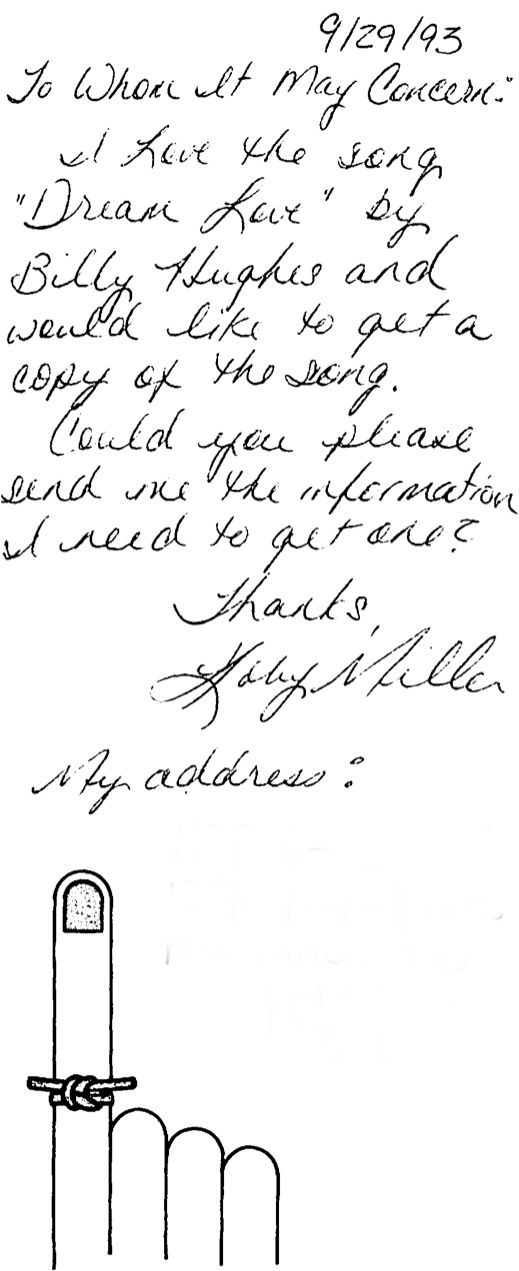 9/29/93
To Whom It May Concern:
I Love the song
"Dream Love" by
Billy Hughes and
would like to get a
copy of the song.
Could you please
send me the information
I need to get one?
Thanks,
Koby Miller
My address: